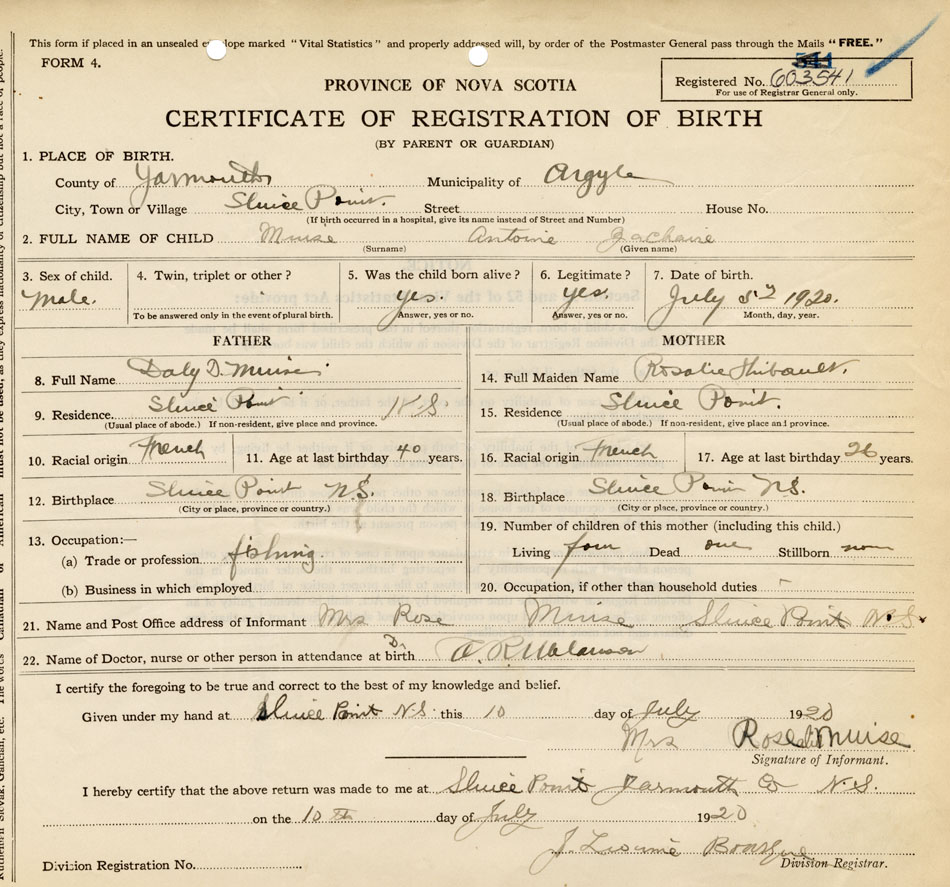 This form if placed in an unsealed envelope marked "Vital Statistics" and properly addressed will, by order of the Postmaster General pass through the Mails "FREE."
FORM 4.
541
Registered No. 603541
For use of Registrar General only.
PROVINCE OF NOVA SCOTIA
CERTIFICATE OF REGISTRATION OF BIRTH
(BY PARENT OR GUARDIAN)
1. PLACE OF BIRTH.
County of Yarmouth Municipality of Argyle
City, Town or Village Sluice Point. Street House No.
(If birth occurred in a hospital, give its name instead of Street and Number)
2. FULL NAME OF CHILD Muise Antoine Zacharie
(Surname) (Given name)
3. Sex of child. 4. Twin, triplet or other? 5. Was the child born alive? 6. Legitimate? 7. Date of birth.
Male. yes. yes. July 1920.
To be answered only in the event of plural birth. Answer, yes or no. Answer, yes or no. Month, day, year.
FATHER MOTHER
8. Full Name Daly D. Muise 14. Full Maiden Name Rosalie Thibault.
9. Residence. Sluice Point N.S. 15. Residence Sluice Point.
(Usual place of abode.) If non-resident, give place and province. (Usual place of abode.) If non-resident, give place and province.
10. Racial origin French 11. Age at last birthday 40 years. 16. Racial origin French 17. Age at last birthday 26 years.
12. Birthplace Sluice Point N.S. 18. Birthplace Sluice Point N.S.
(City or place, province or country.) (City or place, province or country.)
13. Occupation:— 19. Number of children of this mother (including this child.)
(a) Trade or profession fishing. Living four Dead one Stillborn non
(b) Business in which employed 20. Occupation, if other than household duties
21. Name and Post Office address of Informant Mrs Rose Muise Sluice Point N.S.
22. Name of Doctor, nurse or other person in attendance at birth Dr
I certify the foregoing to be true and correct to the best of my knowledge and belief.
Given under my hand at Sluice Point N.S. this 10 day of July 1920
Mrs Rose Muise
Signature of Informant.
I hereby certify that the above return was made to me at Sluice Point Yarmouth Co N.S.
on the 10th day of July 1920
J.
Division Registration No. Division Registrar.